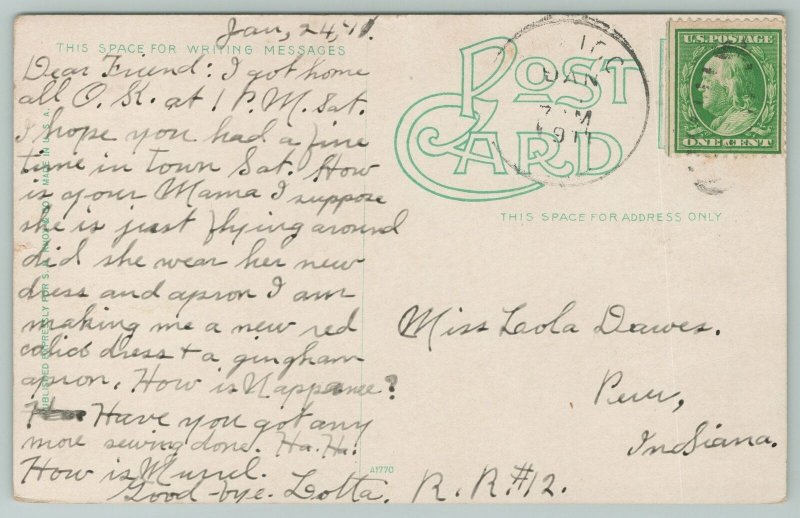 Jan, 24, '11.
THIS SPACE FOR WRITING MESSAGES
Dear Friend: I got home
all O.K. at 1 P.M. Sat.
I hope you had a fine
time in town Sat. How
is your Mama I suppose
she is just flying around
did she wear her new
dress and apron I am
making me a new red
calico dress + a gingham
apron. How is Nappanee?
Have you got any
more sewing done. Ha. Ha.
How is Muriel.
Good-bye. Lotta.
POST
CARD
JAN
7 M
1911
U.S. POSTAGE
ONE CENT
THIS SPACE FOR ADDRESS ONLY
Miss Leola Dawes.
Peru,
Indiana.
R. R. #12.
A1770
MADE IN U.S.A.